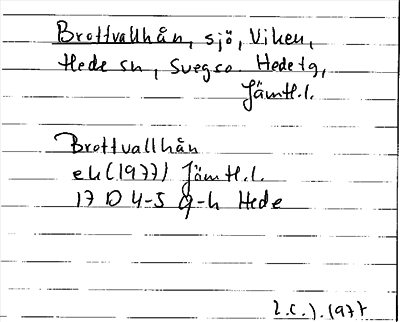 Brottvallhån, sjö, Viken,
Hede sn, Svegso Hedetg,
Jämtl.l.
Brottvallhån
ek (1977) Jämtl.l.
17 D 4-5 g-h Hede
1977